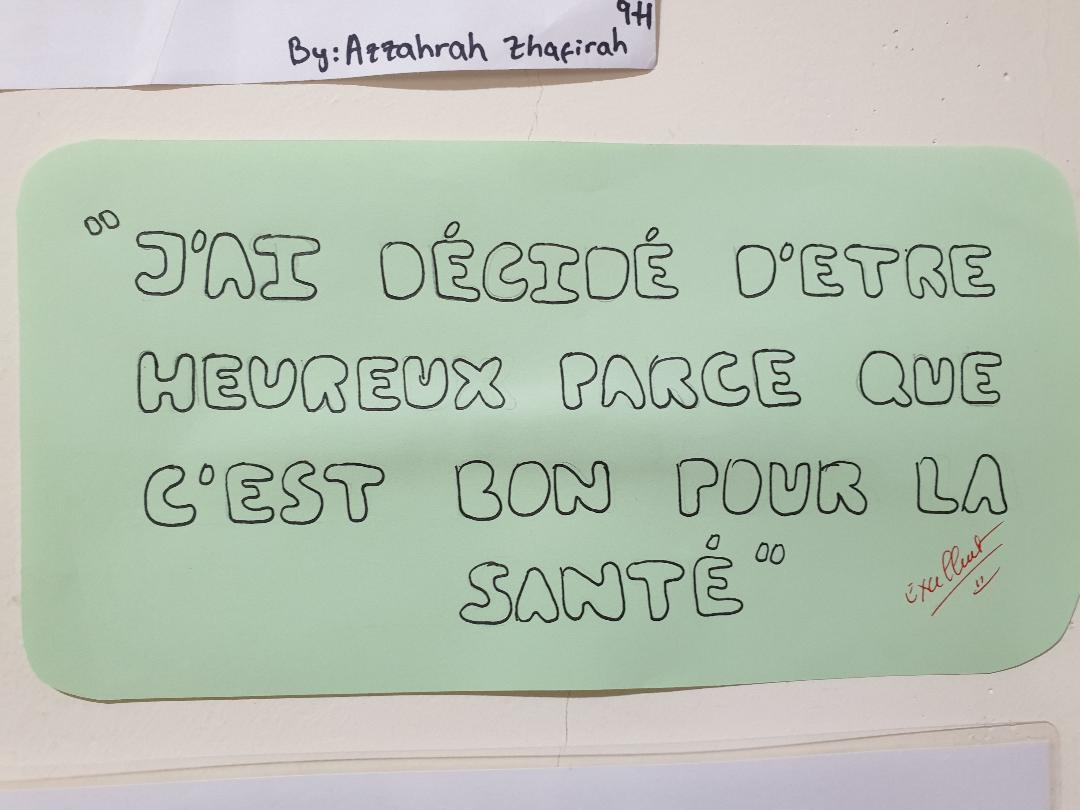 9H
By: Azzahrah Zhafirah
"J'AI DÉCIDÉ D'ETRE
HEUREUX PARCE QUE
C'EST BON POUR LA
SANTÉ"
Exellent